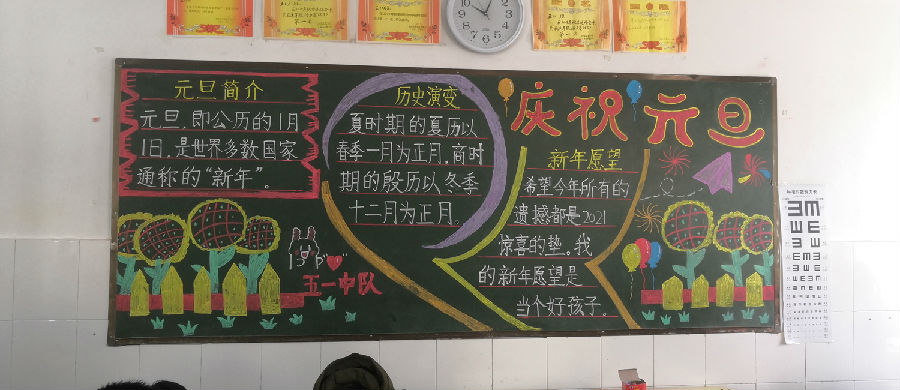 元旦简介
元旦,即公历的1月
1日,是世界多数国家
通称的“新年”。
历史演变
夏时期的夏历以
春季一月为正月,商时
期的殷历以冬季
十二月为正月。
五一中队
庆祝元旦
新年愿望
希望今年所有的
遗憾都是2021
惊喜的垫。我
的新年愿望是
当个好孩子。